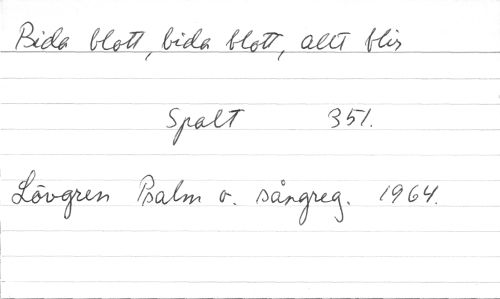 Bida blott, bida blott, allt blir
Spalt 351.
Lövgren Psalm o. sångreg. 1964.